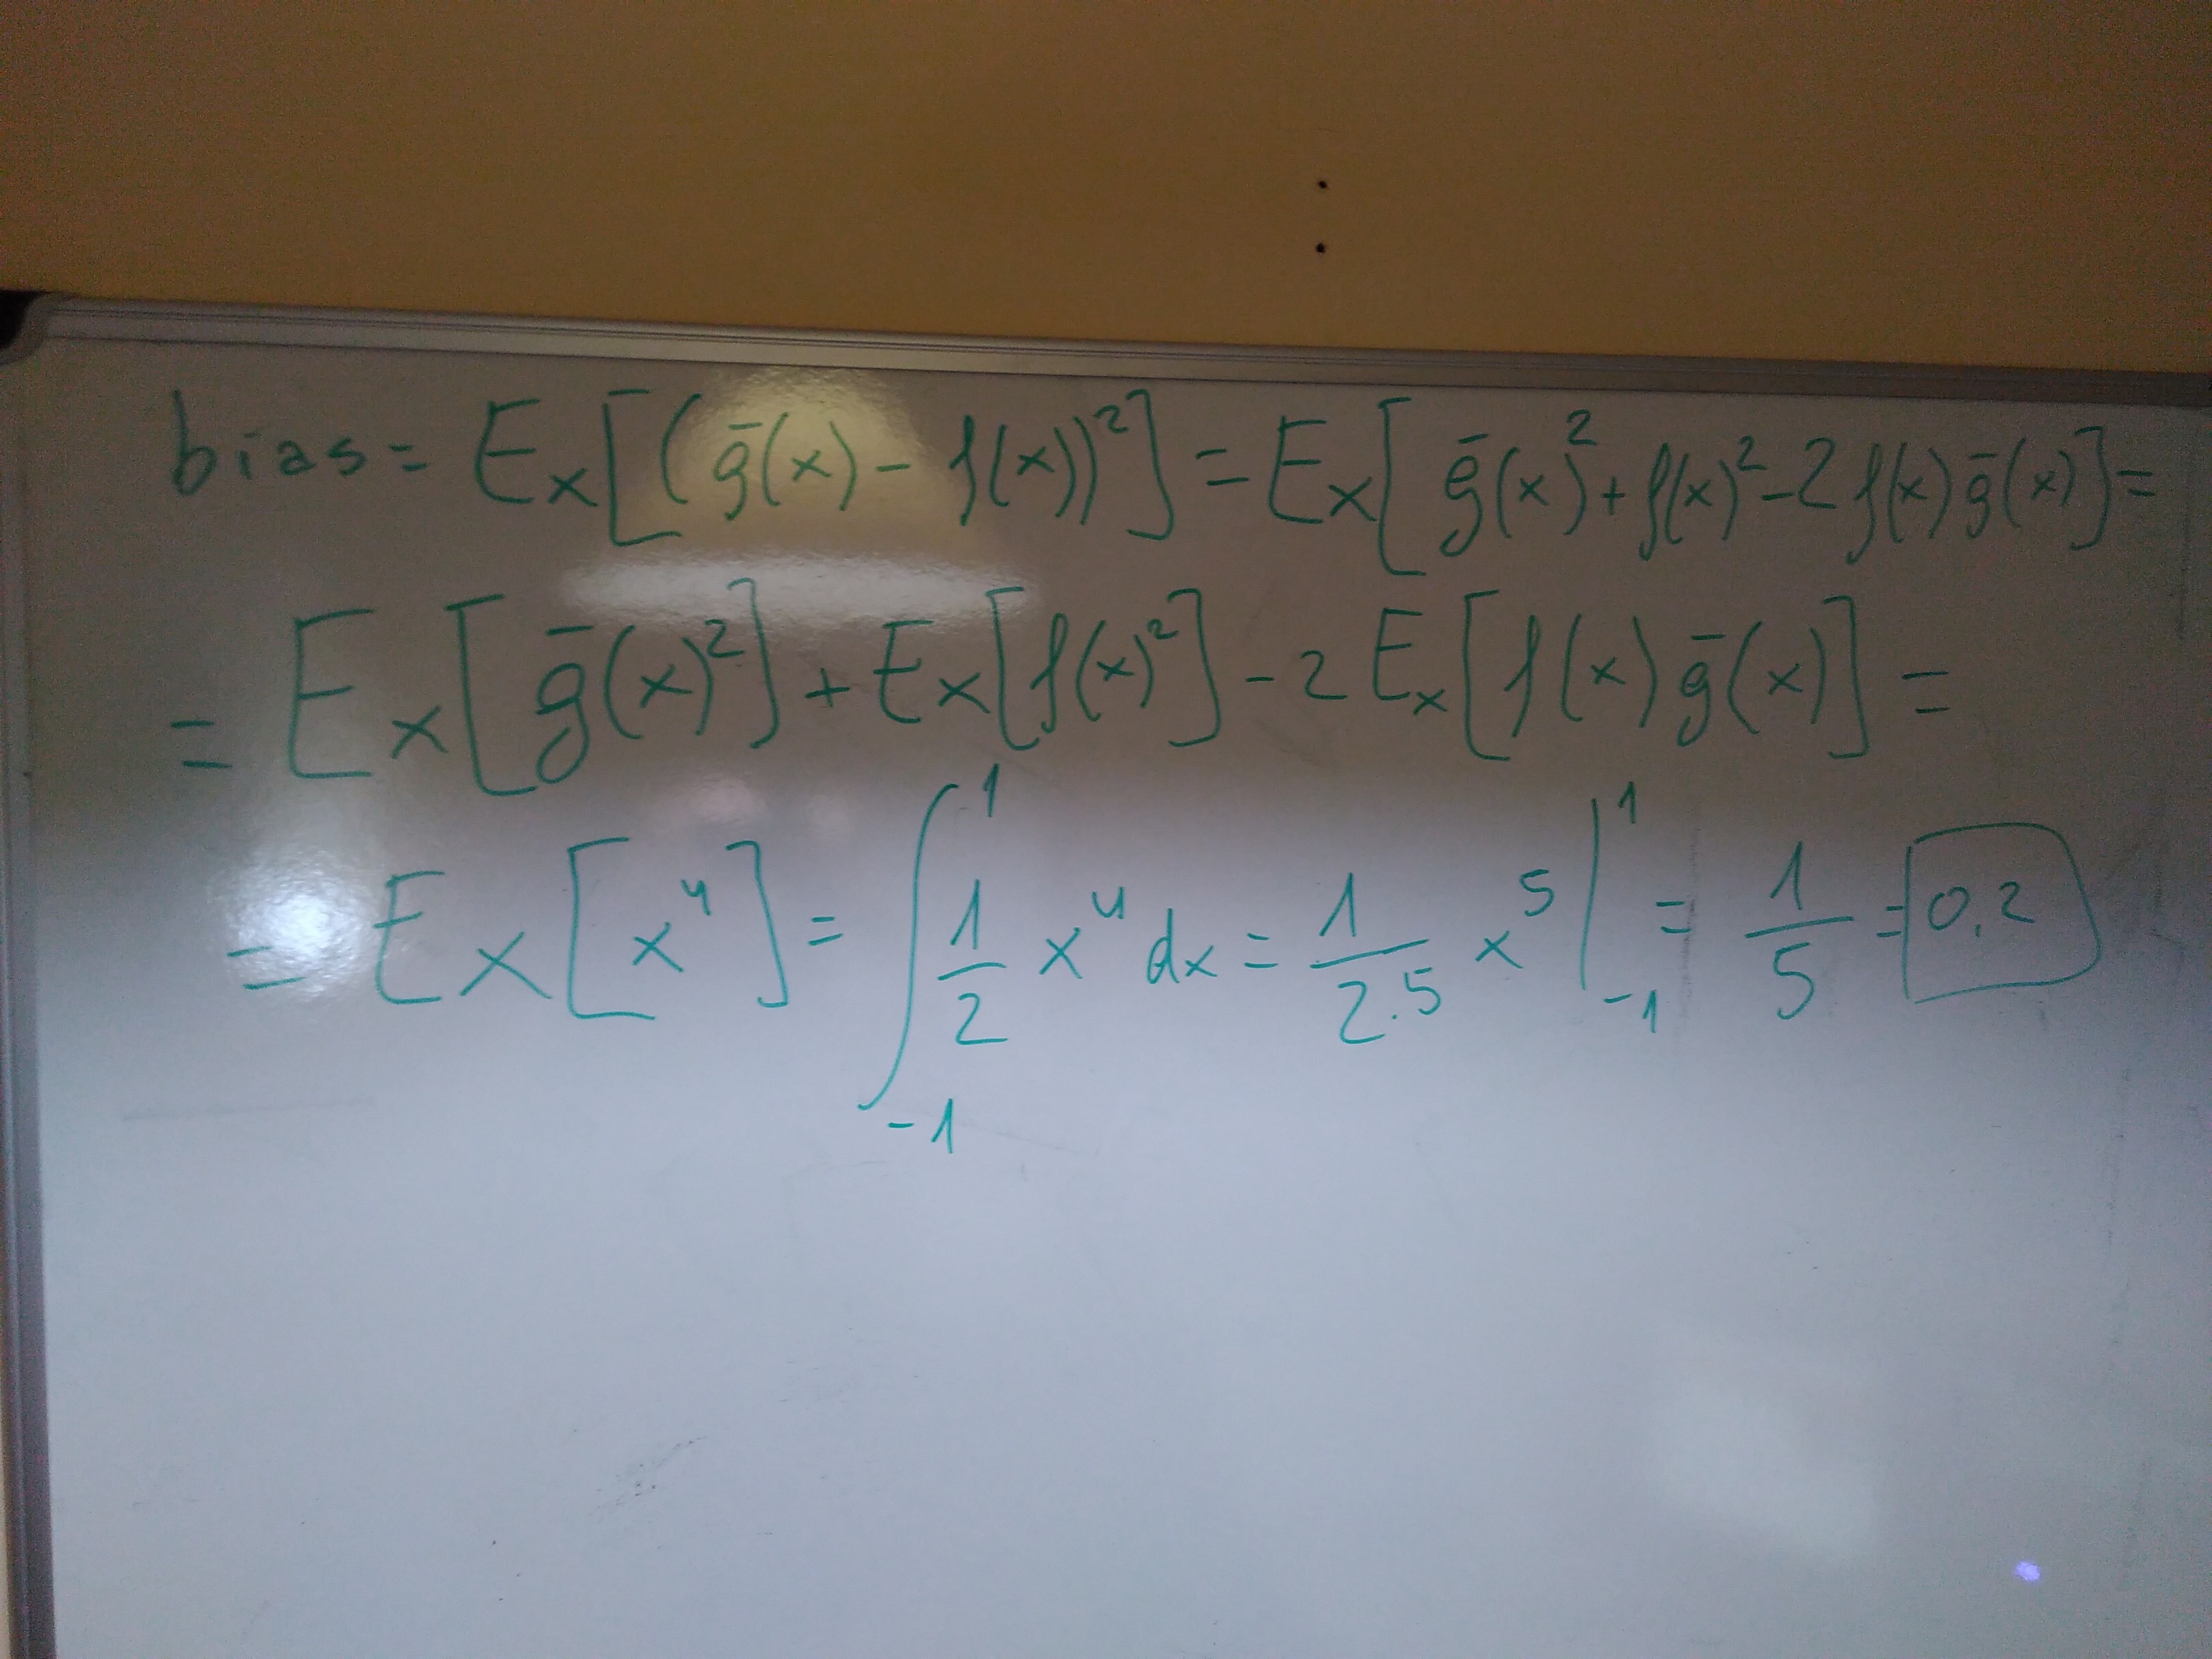 bias = Eₓ[(ḡ(x) - f(x))²] = Eₓ[ḡ(x)² + f(x)² - 2f(x)ḡ(x)] =
= Eₓ[ḡ(x)²] + Eₓ[f(x)²] - 2Eₓ[f(x)ḡ(x)] =
= Eₓ[x⁴] = ∫₋₁¹ 1/2 x⁴ dx = 1/(2.5) x⁵ |₋₁¹ = 1/5 = 0.2